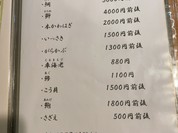 ・鯛 3000円前後
・鮃 4000円前後
・本かわはぎ 2000円前後
・いっさき 1500円前後
・がらかぶ 1300円前後
・車海老 880円
・鯵 1100円
・こう貝 1500円前後
・鮑 1800円前後
・さざえ 500円前後